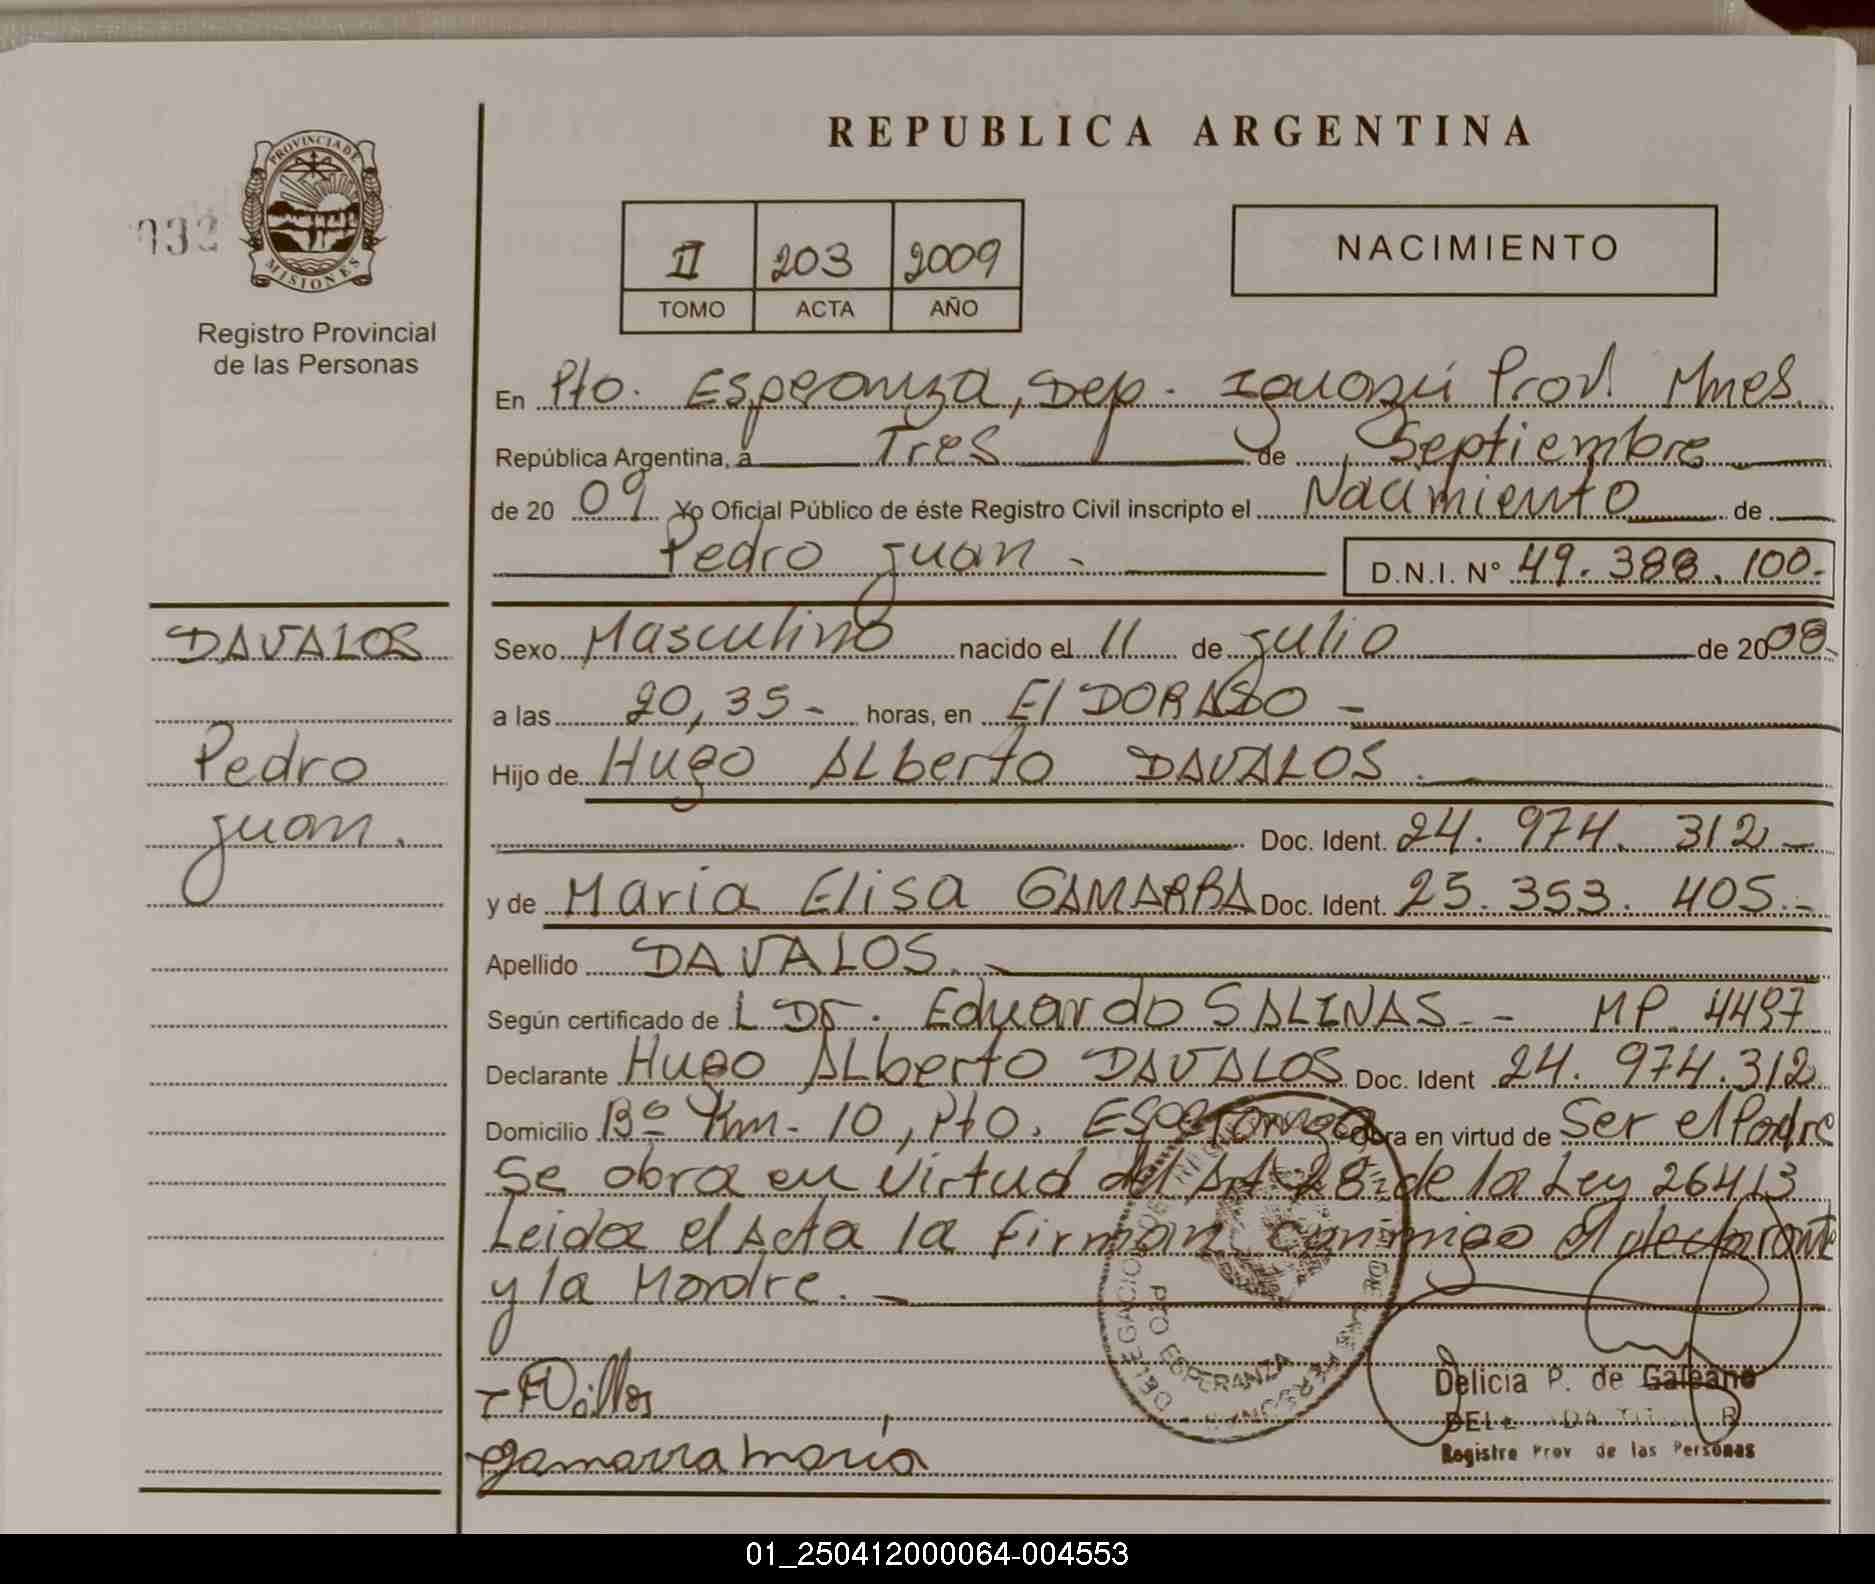 REPUBLICA ARGENTINA
PROVINCIA DE
MISIONES
Registro Provincial
de las Personas
II 203 2009
TOMO ACTA AÑO
NACIMIENTO
En Pto. Esperanza, Dep. Iguazú Prov. Mnes.
República Argentina, a Tres de Septiembre
de 20 09 Yo Oficial Público de éste Registro Civil inscripto el Nacimiento de
Pedro Juan - D.N.I. N° 49.388.100.-
DAVALOS
Pedro
Juan.
Sexo Masculino nacido el 11 de Julio de 2008-
a las 20,35- horas, en El DORADO -
Hijo de Hugo ALberto DAVALOS.
Doc. Ident. 24. 974. 312-
y de Maria Elisa GAMARRA Doc. Ident. 25. 353. 405.-
Apellido DAVALOS.
Según certificado de L Dr. Eduardo SALINAS -- MP. 4497
Declarante Hugo ALberto DAVALOS Doc. Ident 24. 974.312
Domicilio Bº Km- 10, Pto. Esperanza Obra en virtud de Ser el Padre
Se obra en virtud del Art 28 de la Ley 26413
Leida el Acta la firman conmigo el declarante
y la Madre.
DELEGACION
PTO ESPERANZA
Delicia P. de Galeano
Registro Prov de las Personas
Gamarra María
01_250412000064-004553